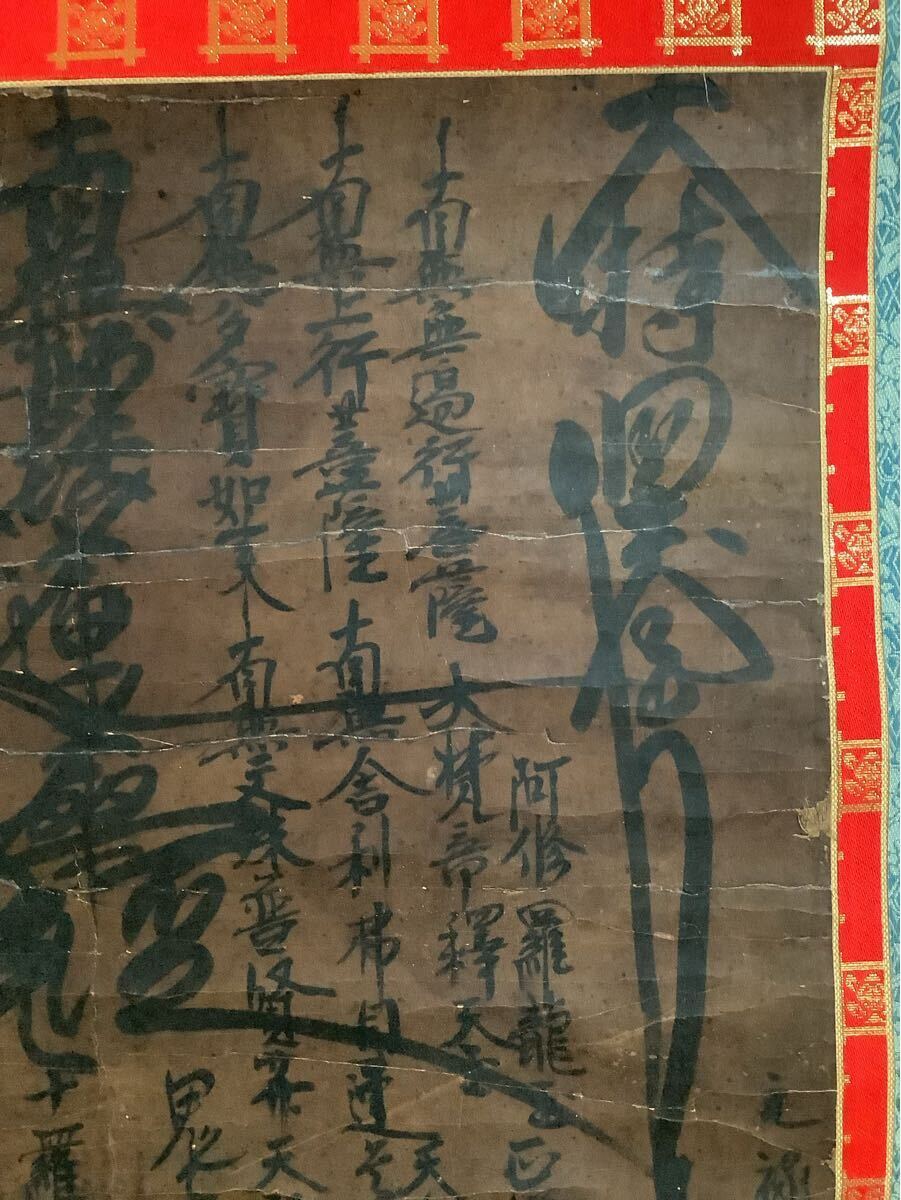 大持國天王
元禄
阿修羅龍王
南無無邊行菩薩 大梵帝釋天王 天
南無上行菩薩 南無舎利弗目連
南無多寳如来 南無文殊普賢 天
南無妙法蓮華経
鬼
十羅